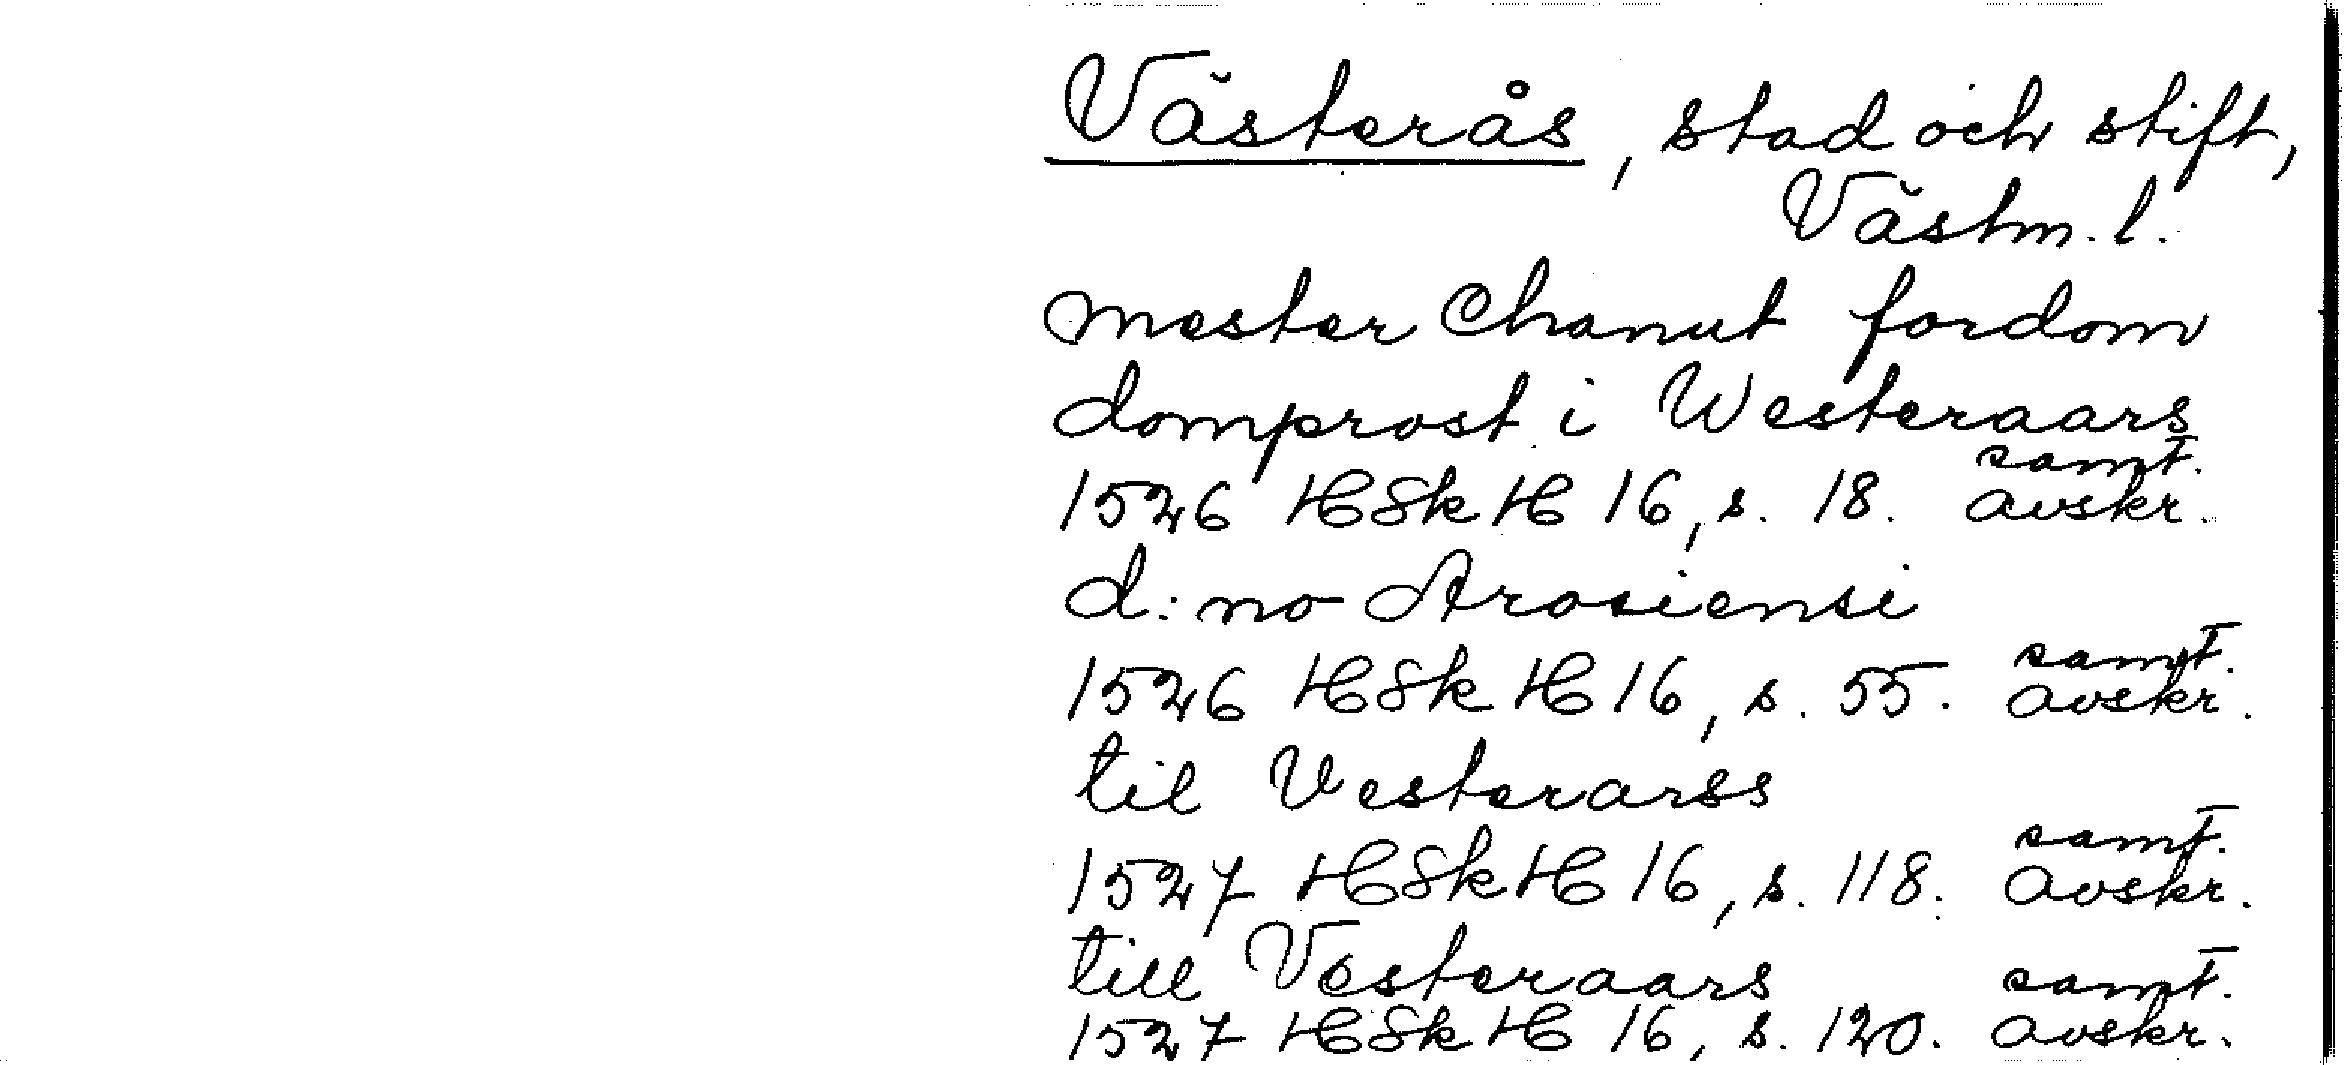 Västerås, stad och stift,
Västm. l.
mester Chanut fordom
domprost i Westeraars
1526 HSk H 16, s. 18. samt. avskr.
d:no Arosiensi
1526 HSk H 16, s. 55. samt. avskr.
til Vesterarss
1527 HSk H 16, s. 118. samt. avskr.
till Vesteraars
1527 HSk H 16, s. 120. samt. avskr.